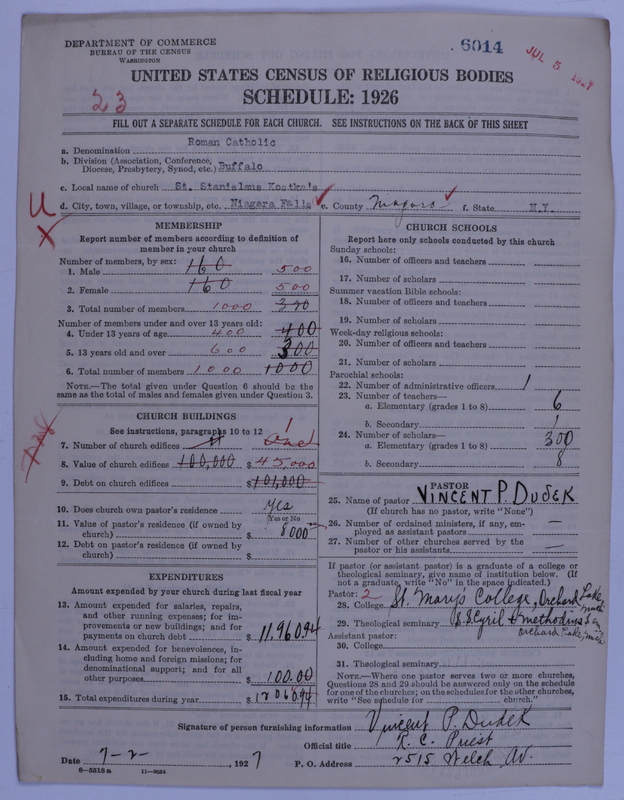 DEPARTMENT OF COMMERCE
BUREAU OF THE CENSUS
WASHINGTON
6014
JUL 5 1927
UNITED STATES CENSUS OF RELIGIOUS BODIES
SCHEDULE: 1926
23
FILL OUT A SEPARATE SCHEDULE FOR EACH CHURCH. SEE INSTRUCTIONS ON THE BACK OF THIS SHEET
a. Denomination Roman Catholic
b. Division (Association, Conference, Diocese, Presbytery, Synod, etc.) Buffalo
c. Local name of church St. Stanislaus Kostka's
d. City, town, village, or township, etc. Niagara Falls e. County Niagara f. State N.Y.
MEMBERSHIP
Report number of members according to definition of
member in your church
Number of members, by sex:
1. Male 160 500
2. Female 160 500
3. Total number of members 1000 320
Number of members under and over 13 years old:
4. Under 13 years of age 400 400
5. 13 years old and over 600 300
6. Total number of members 1000 1000
NOTE.—The total given under Question 6 should be the
same as the total of males and females given under Question 3.
CHURCH BUILDINGS
See instructions, paragraphs 10 to 12
7. Number of church edifices 1 one
8. Value of church edifices 100,000 $ 45,000
9. Debt on church edifices $ 101,000
10. Does church own pastor's residence? yes
(Yes or No)
11. Value of pastor's residence (if owned by
church) $ 8000
12. Debt on pastor's residence (if owned by
church) $
EXPENDITURES
Amount expended by your church during last fiscal year
13. Amount expended for salaries, repairs,
and other running expenses; for im-
provements or new buildings; and for
payments on church debt $ 11,960.94
14. Amount expended for benevolences, in-
cluding home and foreign missions; for
denominational support; and for all
other purposes $ 100.00
15. Total expenditures during year $ 12060.94
CHURCH SCHOOLS
Report here only schools conducted by this church
Sunday schools:
16. Number of officers and teachers
17. Number of scholars
Summer vacation Bible schools:
18. Number of officers and teachers
19. Number of scholars
Week-day religious schools:
20. Number of officers and teachers
21. Number of scholars
Parochial schools:
22. Number of administrative officers 1
23. Number of teachers—
a. Elementary (grades 1 to 8) 6
b. Secondary 1
24. Number of scholars—
a. Elementary (grades 1 to 8) 300
b. Secondary 8
PASTOR
25. Name of pastor VINCENT P. DUDEK
(If church has no pastor, write "None")
26. Number of ordained ministers, if any, em-
ployed as assistant pastors —
27. Number of other churches served by the
pastor or his assistants —
If pastor (or assistant pastor) is a graduate of a college or
theological seminary, give name of institution below. (If
not a graduate, write "No" in the space indicated.)
Pastor: 2
28. College St. Mary's College, Orchard Lake, Mich
29. Theological seminary SS. Cyril & Methodius Sem
Orchard Lake, Mich
Assistant pastor:
30. College
31. Theological seminary
NOTE.—Where one pastor serves two or more churches,
Questions 28 and 29 should be answered only on the schedule
for one of the churches; on the schedules for the other churches,
write "See schedule for church."
Signature of person furnishing information Vincent P. Dudek
Official title R. C. Priest
Date 7-2-, 1927 P. O. Address 2515 Welch Av.
8—5518a 11—9034